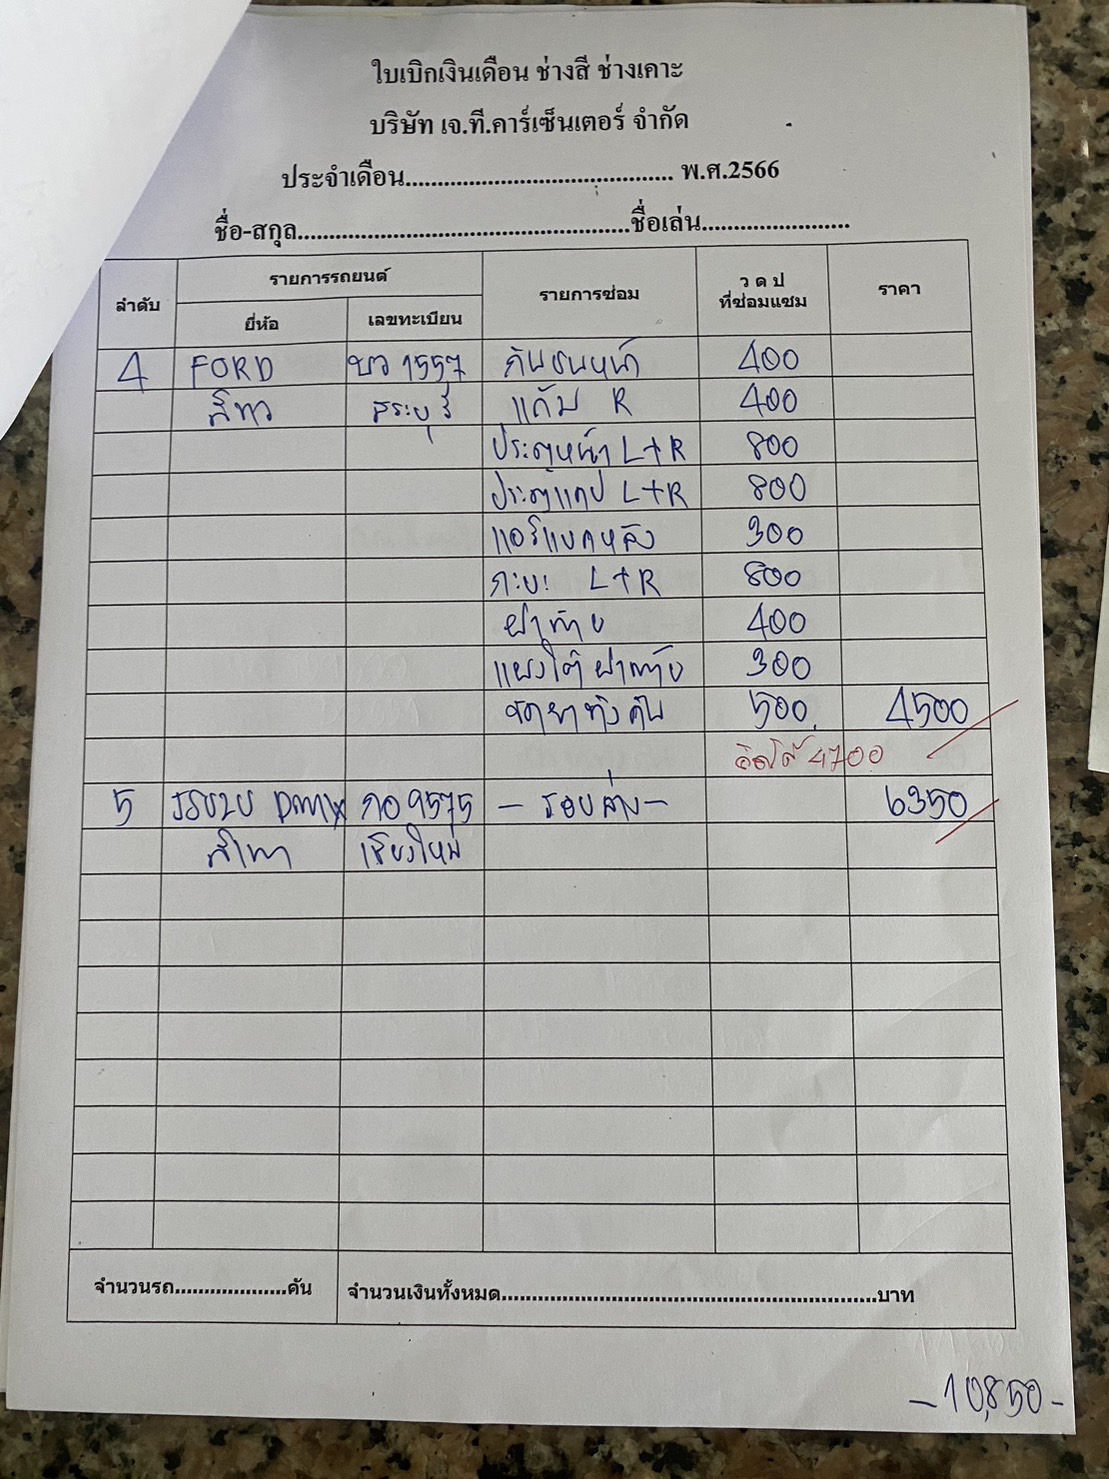 ใบเบิกเงินเดือน ช่างสี ช่างเคาะ
บริษัท เจ.ที.คาร์เซ็นเตอร์ จำกัด
ประจำเดือน.......................................... พ.ศ.2566
ชื่อ-สกุล....................................................ชื่อเล่น.......................
ลำดับ รายการรถยนต์ รายการซ่อม ว ด ป ที่ซ่อมแซม ราคา
ยี่ห้อ เลขทะเบียน
4 FORD บว 1557 กันชนหน้า 400
สีขาว สระบุรี แก้ม R 400
ประตูหน้า L+R 800
ประตูแคป L+R 800
300
กะบะ L+R 800
ฝาท้าย 400
แผงใต้ฝาท้าย 300
ขัดยาทั้งคัน 500 4500
คิดได้ 4700
5 DMAX กอ 9575 - รอบคัน - 6350
สีเทา เชียงใหม่
จำนวนรถ...................คัน จำนวนเงินทั้งหมด..............................................................บาท
- 10,850 -